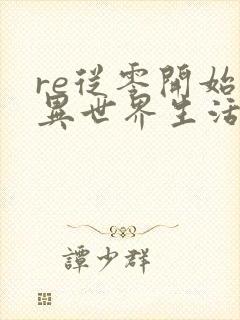 re從零開始
異世界生活
譚少群